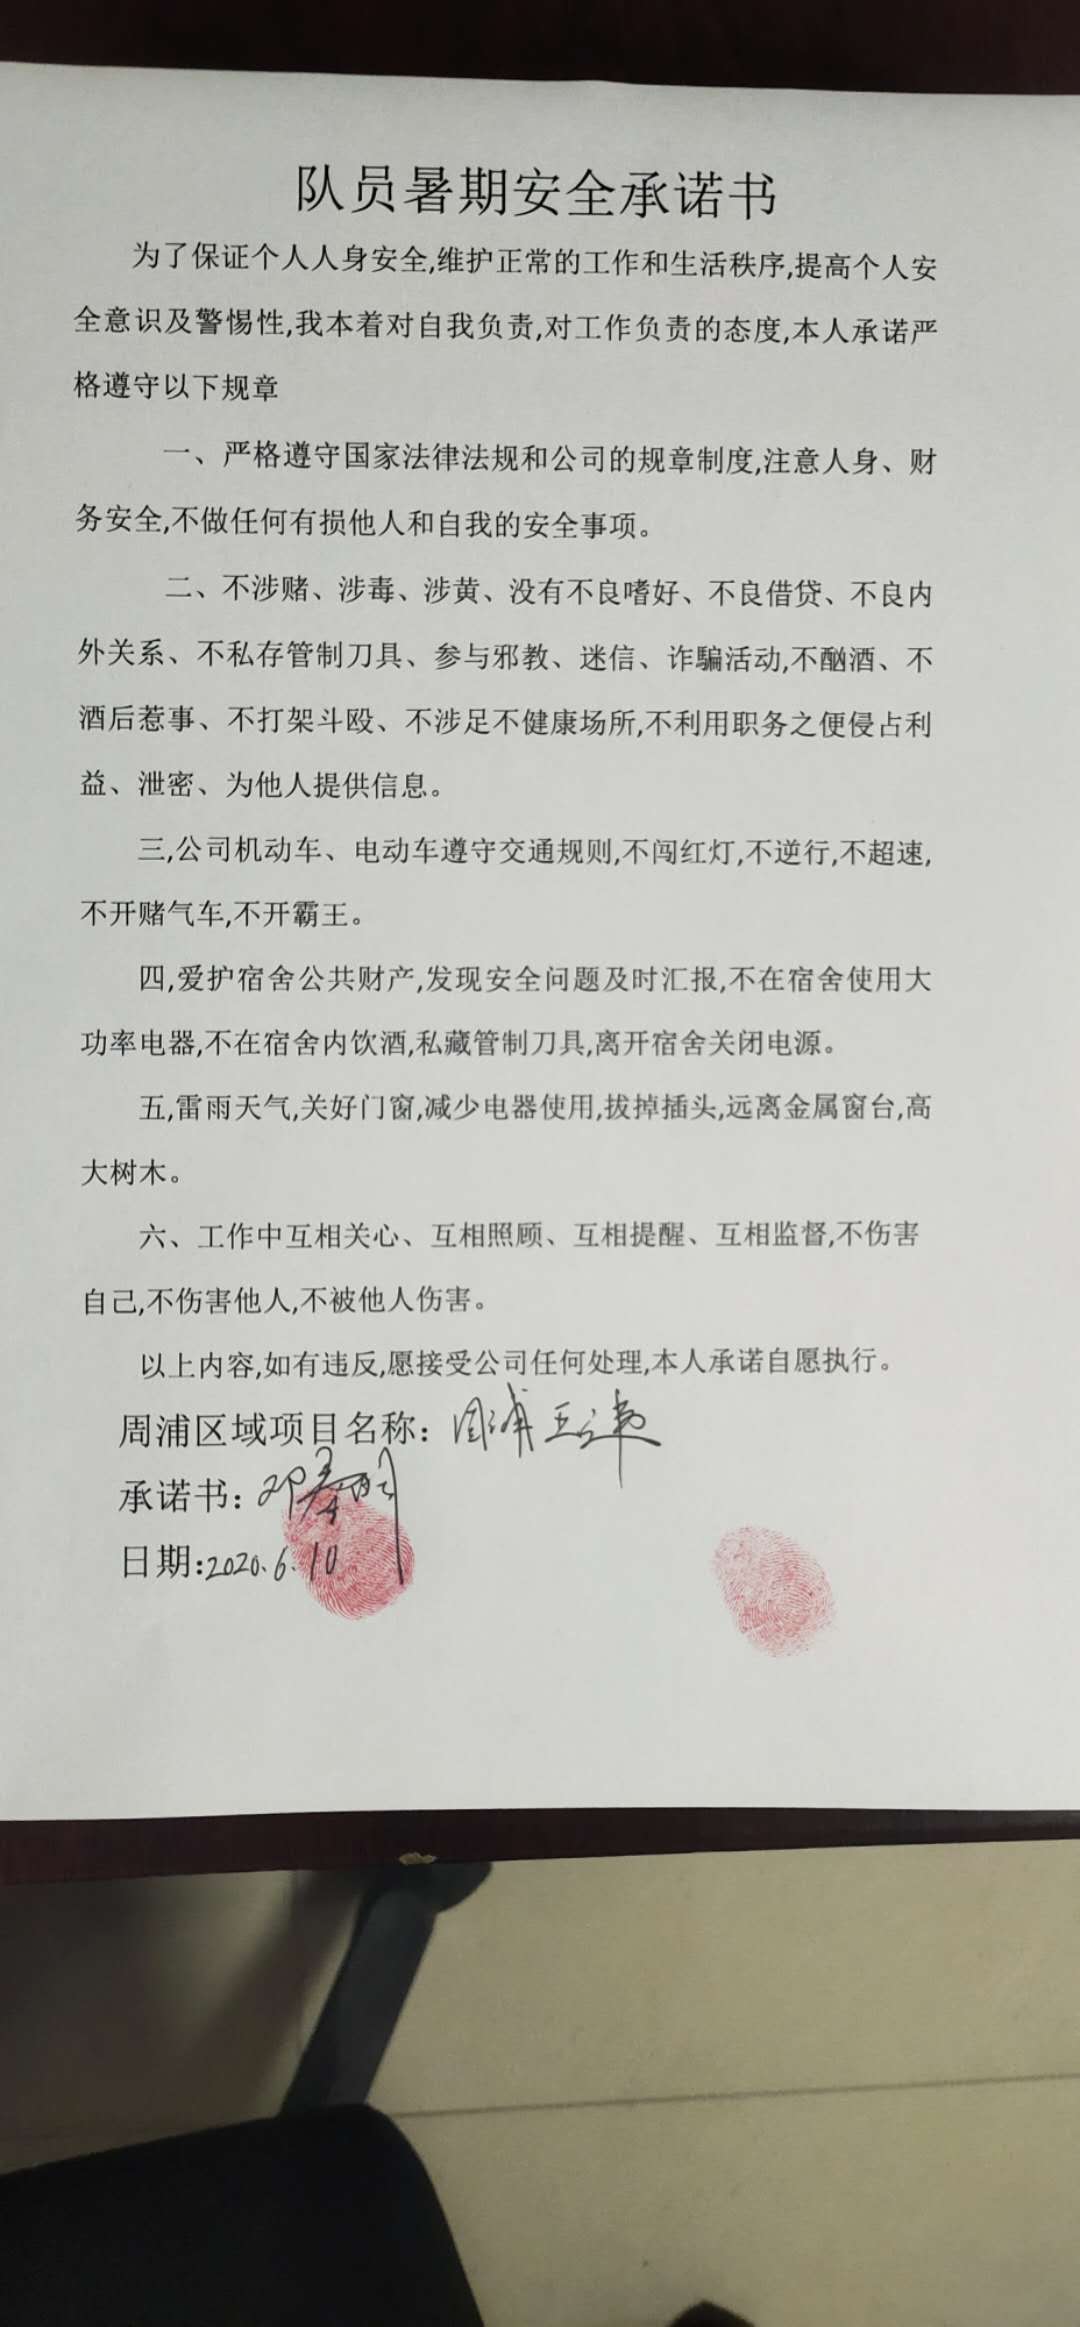 队员暑期安全承诺书
为了保证个人人身安全,维护正常的工作和生活秩序,提高个人安
全意识及警惕性,我本着对自我负责,对工作负责的态度,本人承诺严
格遵守以下规章
一、严格遵守国家法律法规和公司的规章制度,注意人身、财
务安全,不做任何有损他人和自我的安全事项。
二、不涉赌、涉毒、涉黄、没有不良嗜好、不良借贷、不良内
外关系、不私存管制刀具、参与邪教、迷信、诈骗活动,不酗酒、不
酒后惹事、不打架斗殴、不涉足不健康场所,不利用职务之便侵占利
益、泄密、为他人提供信息。
三,公司机动车、电动车遵守交通规则,不闯红灯,不逆行,不超速,
不开赌气车,不开霸王。
四,爱护宿舍公共财产,发现安全问题及时汇报,不在宿舍使用大
功率电器,不在宿舍内饮酒,私藏管制刀具,离开宿舍关闭电源。
五,雷雨天气,关好门窗,减少电器使用,拔掉插头,远离金属窗台,高
大树木。
六、工作中互相关心、互相照顾、互相提醒、互相监督,不伤害
自己,不伤害他人,不被他人伤害。
以上内容,如有违反,愿接受公司任何处理,本人承诺自愿执行。
周浦区域项目名称：周浦
承诺书：邓
日期:2020.6.10